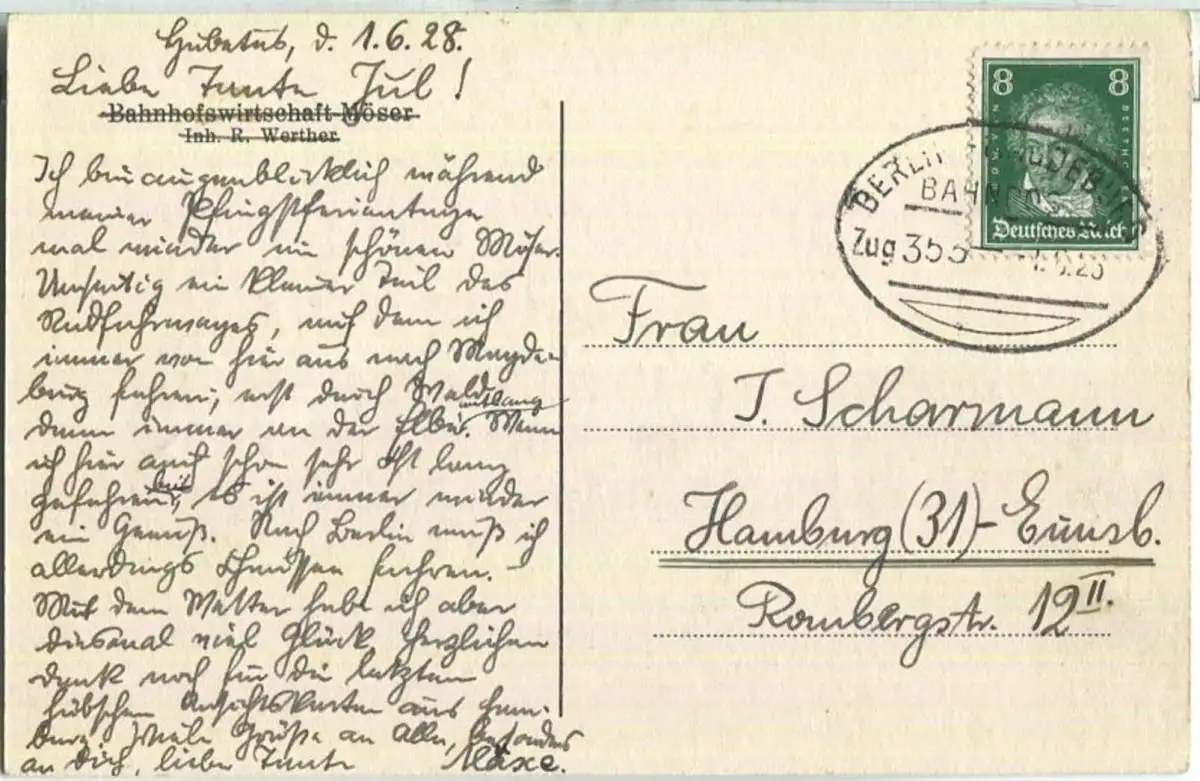 d. 1.6.28.
Liebe Tante Jul!
Bahnhofswirtschaft Möser
Inh. R. Werther
Ich bin augenblicklich während
meiner Pfingstferientage
mal wieder im schönen Möser.
Umseitig ein kleiner Teil des
Radfahrweges, auf dem ich
immer von hier aus nach Magde-
burg fahre; erst durch Wald
dann immer an der Elbe entlang. Wenn
ich hier auch schon sehr oft lang
gefahren bin, es ist immer wieder
ein Genuß. Nach Berlin muß ich
allerdings fahren.
Mit dem Wetter habe ich aber
diesmal viel Glück. Herzlichen
Dank noch für die letzten
hübschen Ansichtskarten aus Ham-
burg. Viele Grüße an Alle, besonders
an Dich, liebe Tante Maxe.
8 8
Deutsches Reich
BERLIN MAGDEBURG
BAHNPOST
Zug 353
Frau
J. Scharmann
Hamburg (31)-Eimsb.
Rombergstr. 12 II.